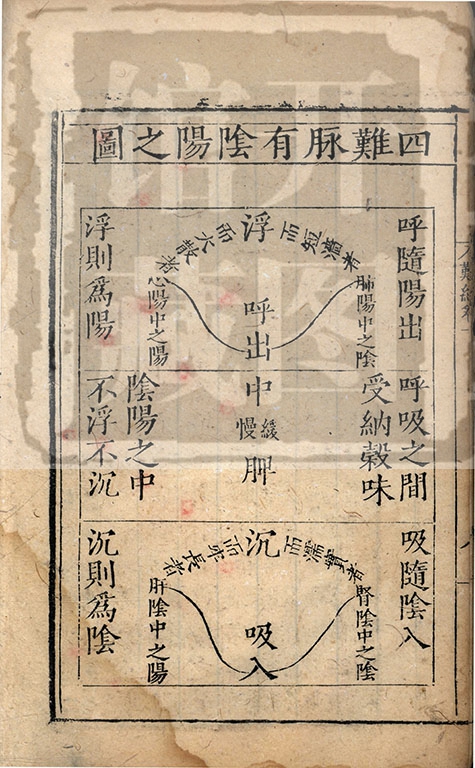 四難脉有陰陽之圖
呼隨陽出
浮
而短濇者
而大散者
肺陽中之陰
呼出
心陽中之陽
浮則爲陽
呼吸之間
受納穀味
中
緩慢
脾
陰陽之中
不浮不沉
吸隨陰入
沉
而濡實者
而牢長者
腎陰中之陰
吸入
肝陰中之陽
沉則爲陰